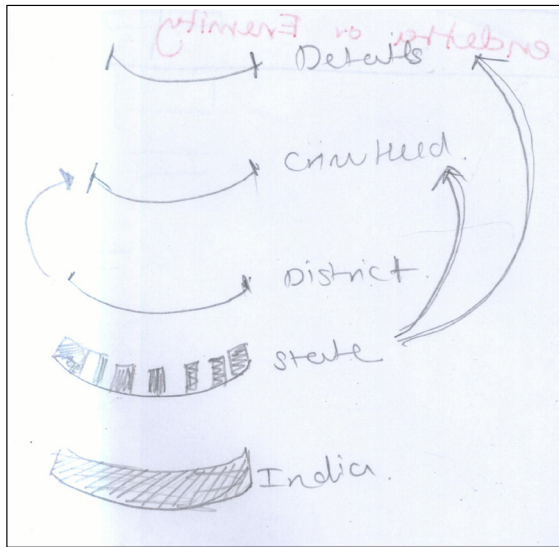 Details
Crim Head.
District.
State
India.